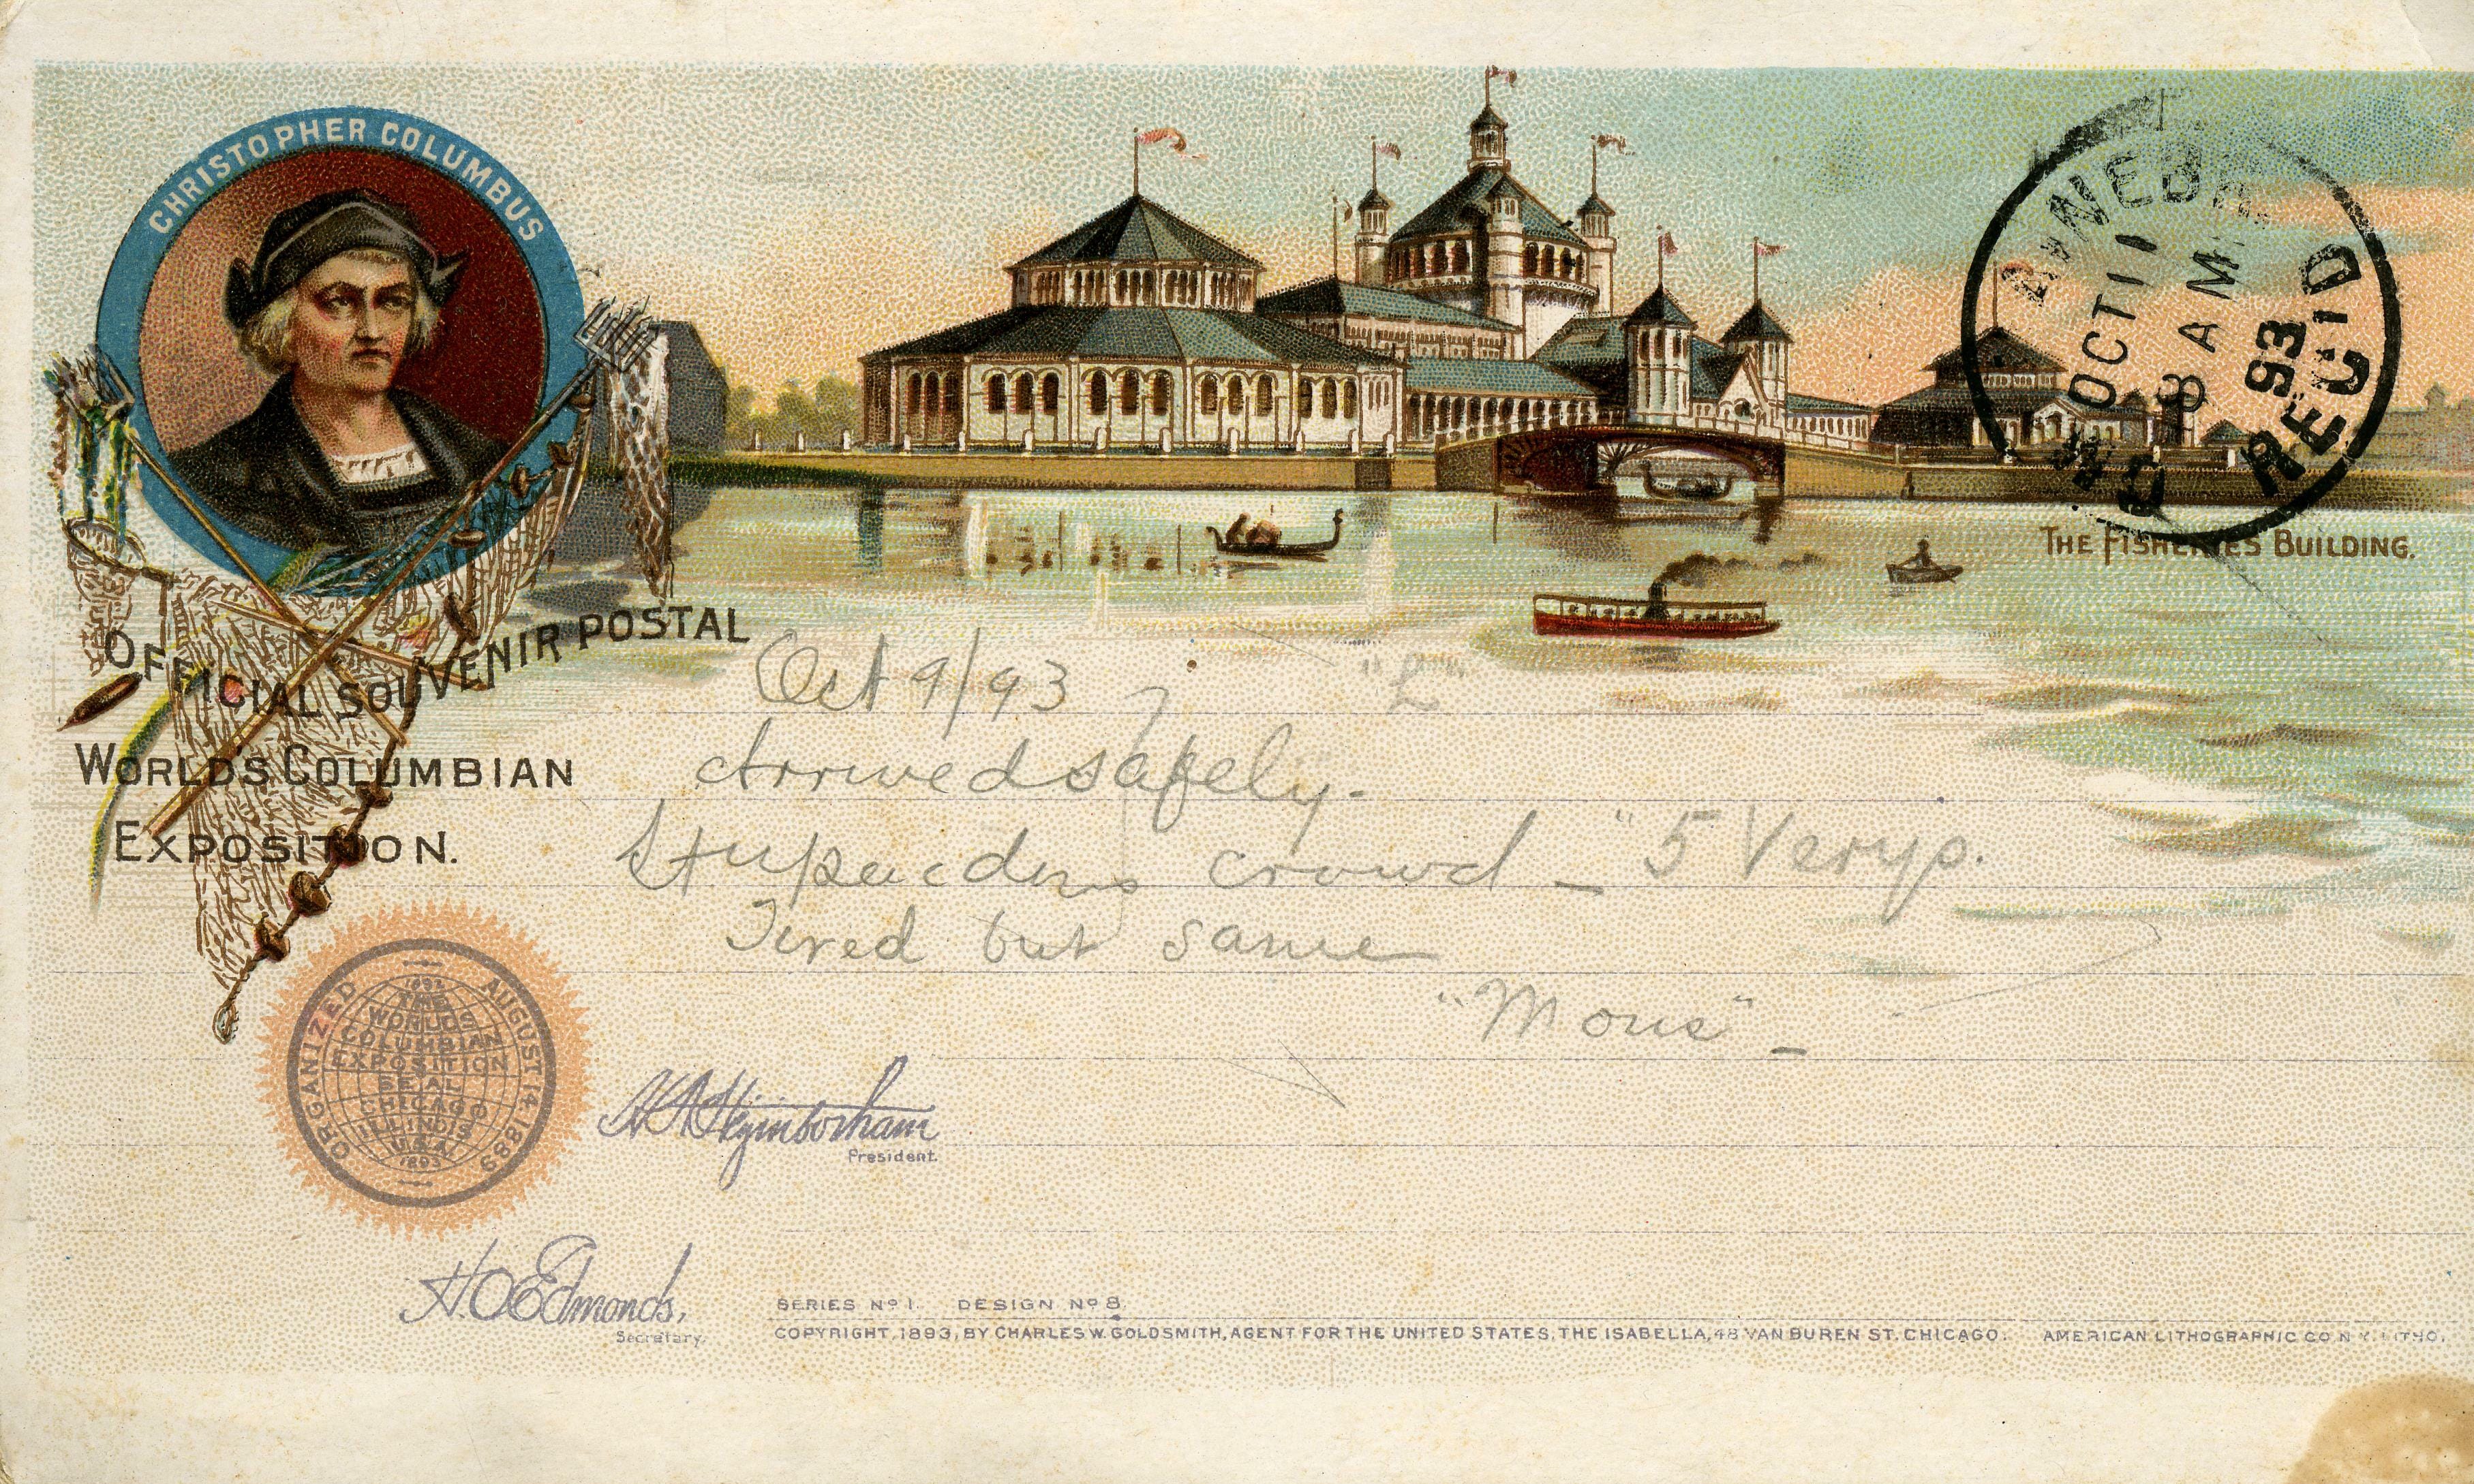 CHRISTOPHER COLUMBUS
OCT 11
8 AM
93
REC'D
THE FISHERIES BUILDING.
OFFICIAL SOUVENIR POSTAL
WORLD'S COLUMBIAN
EXPOSITION.
Oct 9/93 "L"
Arrived safely.
Stupendous crowd — "5 Verys.
Tired but same
ORGANIZED AUGUST 14 1889
1892
THE
WORLD'S
COLUMBIAN
EXPOSITION
SEAL
CHICAGO
ILLINOIS
U.S.A.
1893
H N Higinbotham
President.
H. O. Edmonds,
Secretary.
SERIES Nº 1. DESIGN Nº 8.
COPYRIGHT, 1893, BY CHARLES W. GOLDSMITH, AGENT FOR THE UNITED STATES, THE ISABELLA, 48 VAN BUREN ST. CHICAGO. AMERICAN LITHOGRAPHIC CO. N.Y. LITHO.